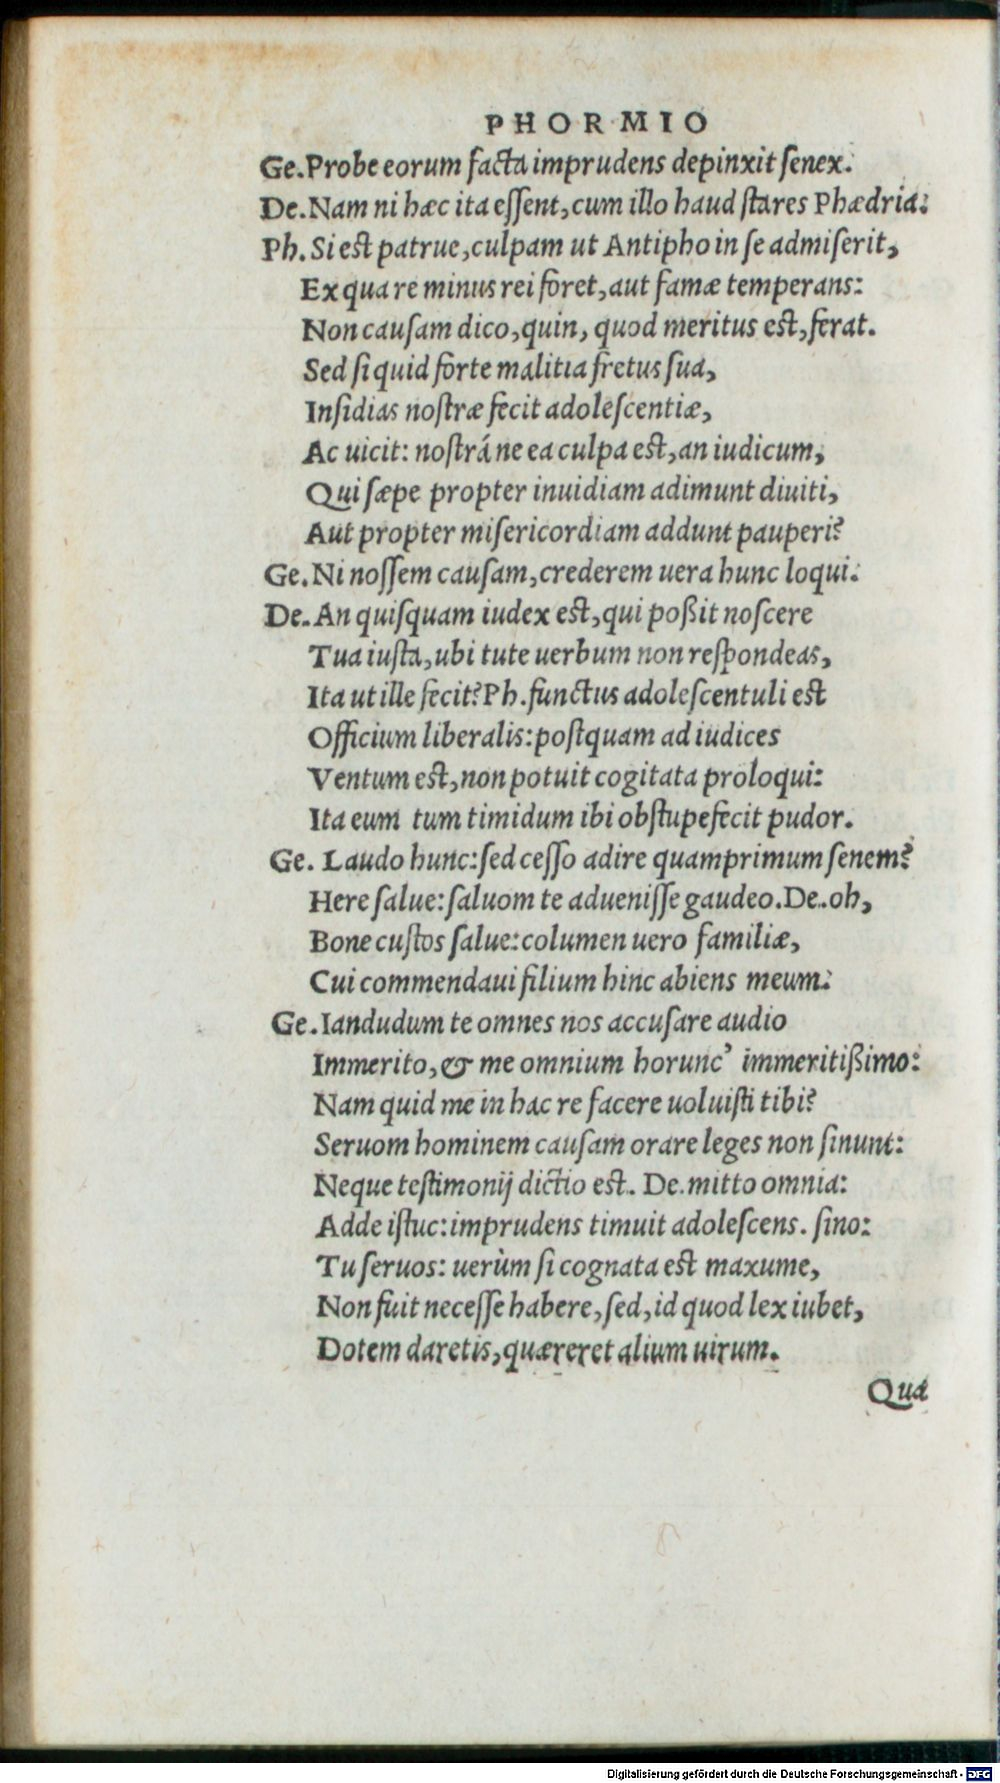 PHORMIO
Ge. Probe eorum facta imprudens depinxit ſenex.
De. Nam ni hæc ita eſſent, cum illo haud ſtares Phædria:
Ph. Si eſt patrue, culpam ut Antipho in ſe admiſerit,
Ex qua re minus rei foret, aut famæ temperans:
Non cauſam dico, quin, quod meritus eſt, ferat.
Sed ſi quid forte malitia fretus ſua,
Inſidias noſtræ fecit adoleſcentiæ,
Ac uicit: noſtrá ne ea culpa eſt, an iudicum,
Qui ſæpe propter inuidiam adimunt diuiti,
Aut propter miſericordiam addunt pauperi?
Ge. Ni noſſem cauſam, crederem uera hunc loqui.
De. An quiſquam iudex eſt, qui poßit noſcere
Tua iuſta, ubi tute uerbum non reſpondeas,
Ita ut ille fecit? Ph. functus adoleſcentuli eſt
Officium liberalis: poſtquam ad iudices
Ventum eſt, non potuit cogitata proloqui:
Ita eum tum timidum ibi obſtupefecit pudor.
Ge. Laudo hunc: ſed ceſſo adire quamprimum ſenem?
Here ſalue: ſaluom te adueniſſe gaudeo. De. oh,
Bone cuſtos ſalue: columen uero familiæ,
Cui commendaui filium hinc abiens meum:
Ge. Iandudum te omnes nos accuſare audio
Immerito, & me omnium horunc' immeritißimo:
Nam quid me in hac re facere uoluiſti tibi?
Seruom hominem cauſam orare leges non ſinunt:
Neque teſtimonij dictio eſt. De. mitto omnia:
Adde iſtuc: imprudens timuit adoleſcens. ſino:
Tu ſeruos: uerùm ſi cognata eſt maxume,
Non fuit neceſſe habere, ſed, id quod lex iubet,
Dotem daretis, quæreret alium uirum.
Qua
Digitalisierung gefördert durch die Deutsche Forschungsgemeinschaft - DFG